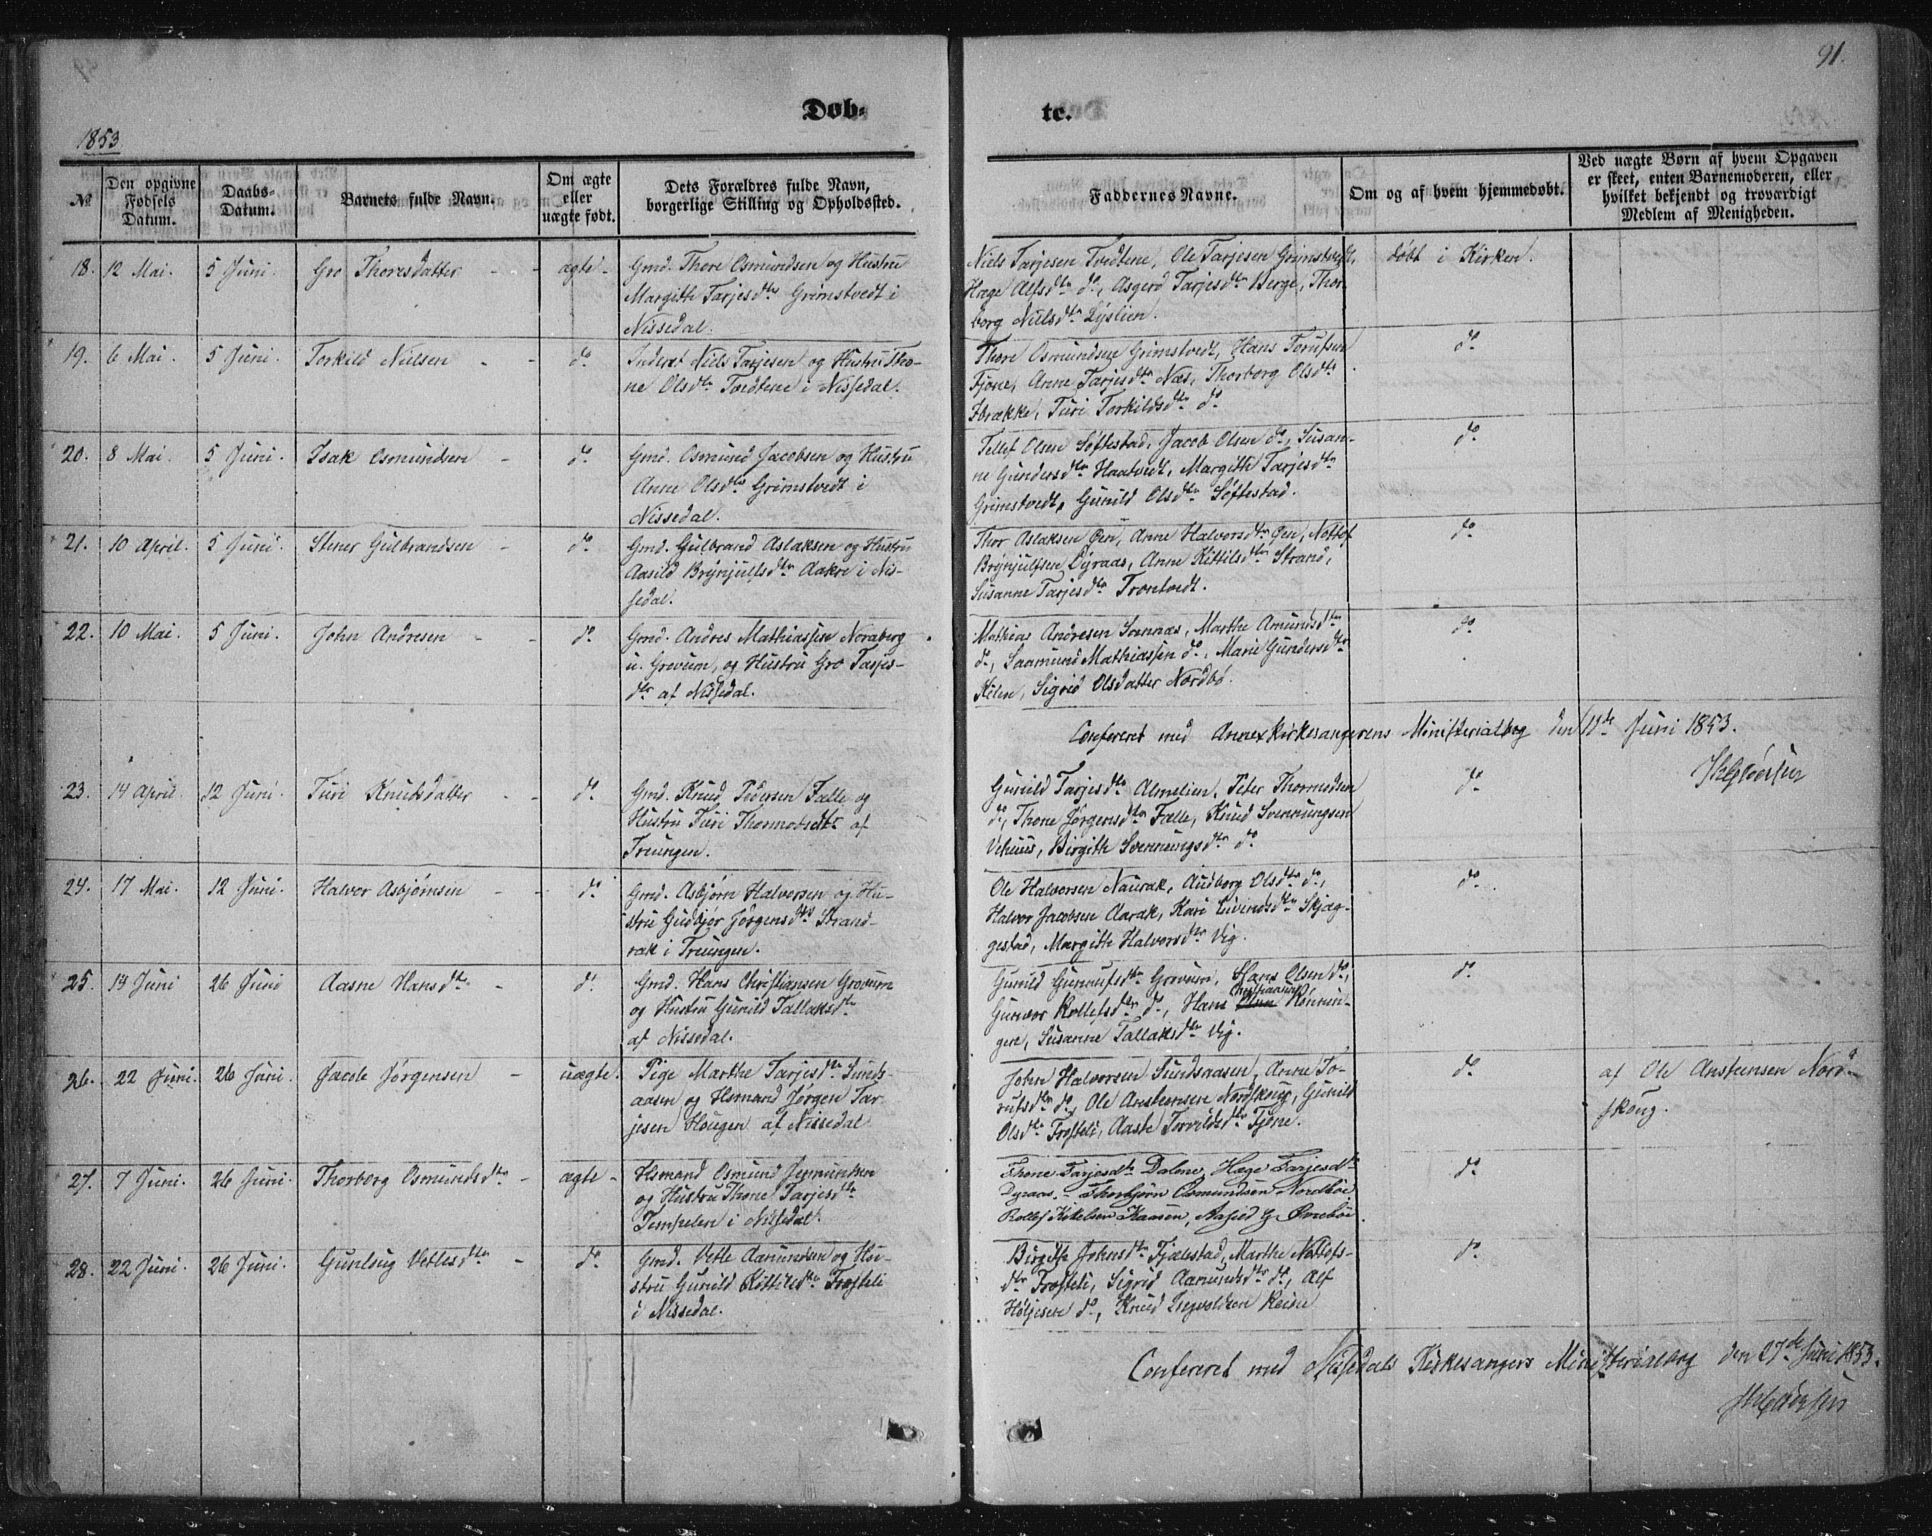 91.
Døb-
te.
1853
№
Den opgivne
Fødsels
Datum.
Daabs-
Datum.
Barnets fulde Navn.
Om ægte
eller
uægte født.
Dets Forældres fulde Navn,
borgerlige Stilling og Opholdssted.
Faddernes Navne.
Om og af hvem hjemmedøbt.
Ved uægte Børn af hvem Opgaven
er skeet, enten Barnemoderen, eller
hvilket bekjendt og troværdigt
Medlem af Menigheden.
18. 12 Mai. 5 Juni. Gro Thoresdatter - - ægte -
Gmd. Thore Osmundsen og Hustru
Margith Tarjesdtr Grimstvedt i
Nissedal.
Niels Tarjesen Tvedtene, Ole Tarjesen Grimstvedt,
Hæge Alfsdtr do, Asgerd Tarjesdtr Berge, Thor-
borg Nielsdtr Lyslien.
døbt i Kirken.
19. 6 Mai. 5 Juni. Torkild Nielsen - do
Inderst Niels Tarjesen og Hustru Tho-
ne Olsdtr Tvedtene i Nissedal.
Thore Osmundsen Grimstvedt, Hans
Fjone, Anne Tarjesdtr Næs, Thorborg Olsdtr
Brække, Turi Torkildsdtr do
do
20. 8 Mai. 5 Juni. Isak Osmundsen - do
Gmd. Osmund Jacobsen og Hustru
Anne Olsdtr Grimstvedt i
Nissedal.
Tellef Olsen Søftestad, Jacob Olsen do, Susan-
ne Gundersdtr Haatvedt, Margith Tarjesdtr
Grimstvedt, Gunild Olsdtr Søftestad.
do
21. 10 April. 5 Juni. Stener Gulbrandsen - do
Gmd. Gulbrand Aslaksen og Hustru
Aasild Brynjulfsdtr Aakre i Nis-
sedal.
Thor Aslaksen Øen, Anne Halvorsdtr Øen, Nottof
Brynjulfsen Dyraas, Anne Kittilsdtr Strand,
Susanne Tarjesdtr Trontvedt.
do
22. 10 Mai. 5 Juni. John Andresen - - do
Gmd. Andres Mathiassen Noraberg
u. Grovum, og Hustru Gro Tarjes-
dtr af Nissedal.
Mathias Andresen Sonnæs, Marthe Amundsdtr
do, Saamund Mathiassen do, Marie Gundersdtr
Kilen, Sigrid Olsdatter Nordbø.
do
Confereret med Annexkirkesangerens Ministerialbog den 11te Juni 1853.
23. 14 April. 12 Juni. Turi Knutsdatter - - do
Gmd. Knud Pedersen Fælle og
Hustru Turi Thormodsdtr af
Treungen.
Gunild Tarjesdtr Almelien, Peter Thormodsen
do, Thone Jørgensdtr Fælle, Knud Svenningsen
Vehuus, Birgith Svenningsdtr do
do
24. 17 Mai. 12 Juni. Halvor Asbjørnsen - - do
Gmd. Asbjørn Halvorsen og Hu-
stru Gudbjør Jørgensdtr Strand-
rak i Treungen.
Ole Halvorsen Naurak, Audborg Olsdtr do,
Halvor Jacobsen Aarak, Kari Eivindsdtr Skjæg-
gestad, Margith Halvorsdtr Vig.
do
25. 14 Juni 26 Juni Aasne Hansdtr - do
Gmd. Hans Christiansen Grovum
og Hustru Gunild Tallaksdtr
af Nissedal.
Gunild Gunnufsdtr Grovum, Hans Olsen do,
Gunvor Rollefsdtr do, Hans Olsen Christiansen Rønnin-
gen, Susanne Tallaksdtr Vig.
do
26. 22 Juni. 26 Juni. Jacob Jørgensen - uægte.
Pige Marthe Tarjesdtr Sunds-
aasen og Hsmand Jørgen Tar-
jesen Hougen af Nissedal
John Halvorsen Sundsaasen, Anne To-
rutsdtr do, Ole Anstensen Nordskoug, Gunild
Olsdtr Trofteli, Aaste Torvildsdtr Fjone.
do
af Ole Anstensen Nord-
skoug.
27. 7 Juni. 26 Juni. Thorborg Osmundsdtr - ægte -
Hsmand Osmund Jermundsen
og Hustru Thone Tarjesdtr
Tempelen i Nissedal.
Thone Tarjesdtr Dalene, Hæge Tarjesdtr
Dyraas - Thorbjørn Osmundsen Nordbøe,
Rollef Kitelsen Kaasen, Aasjed G. Ønebøe
do
28. 22 Juni. 26 Juni. Gunlaug Vetlesdtr - do
Gmd. Vetle Aamundsen og Hu-
stru Gunild Kittilsdtr Trofteli
i Nissedal.
Birgith Johnsdtr Fjælestad, Marthe Nottofs-
dtr Trofteli, Sigrid Aamundsdtr do, Alf
Høljesen do, Knud Ingvoldsen Reine
do
Confereret med Nissedals Kirkesangers Ministerialbog den 27de Juni 1853.